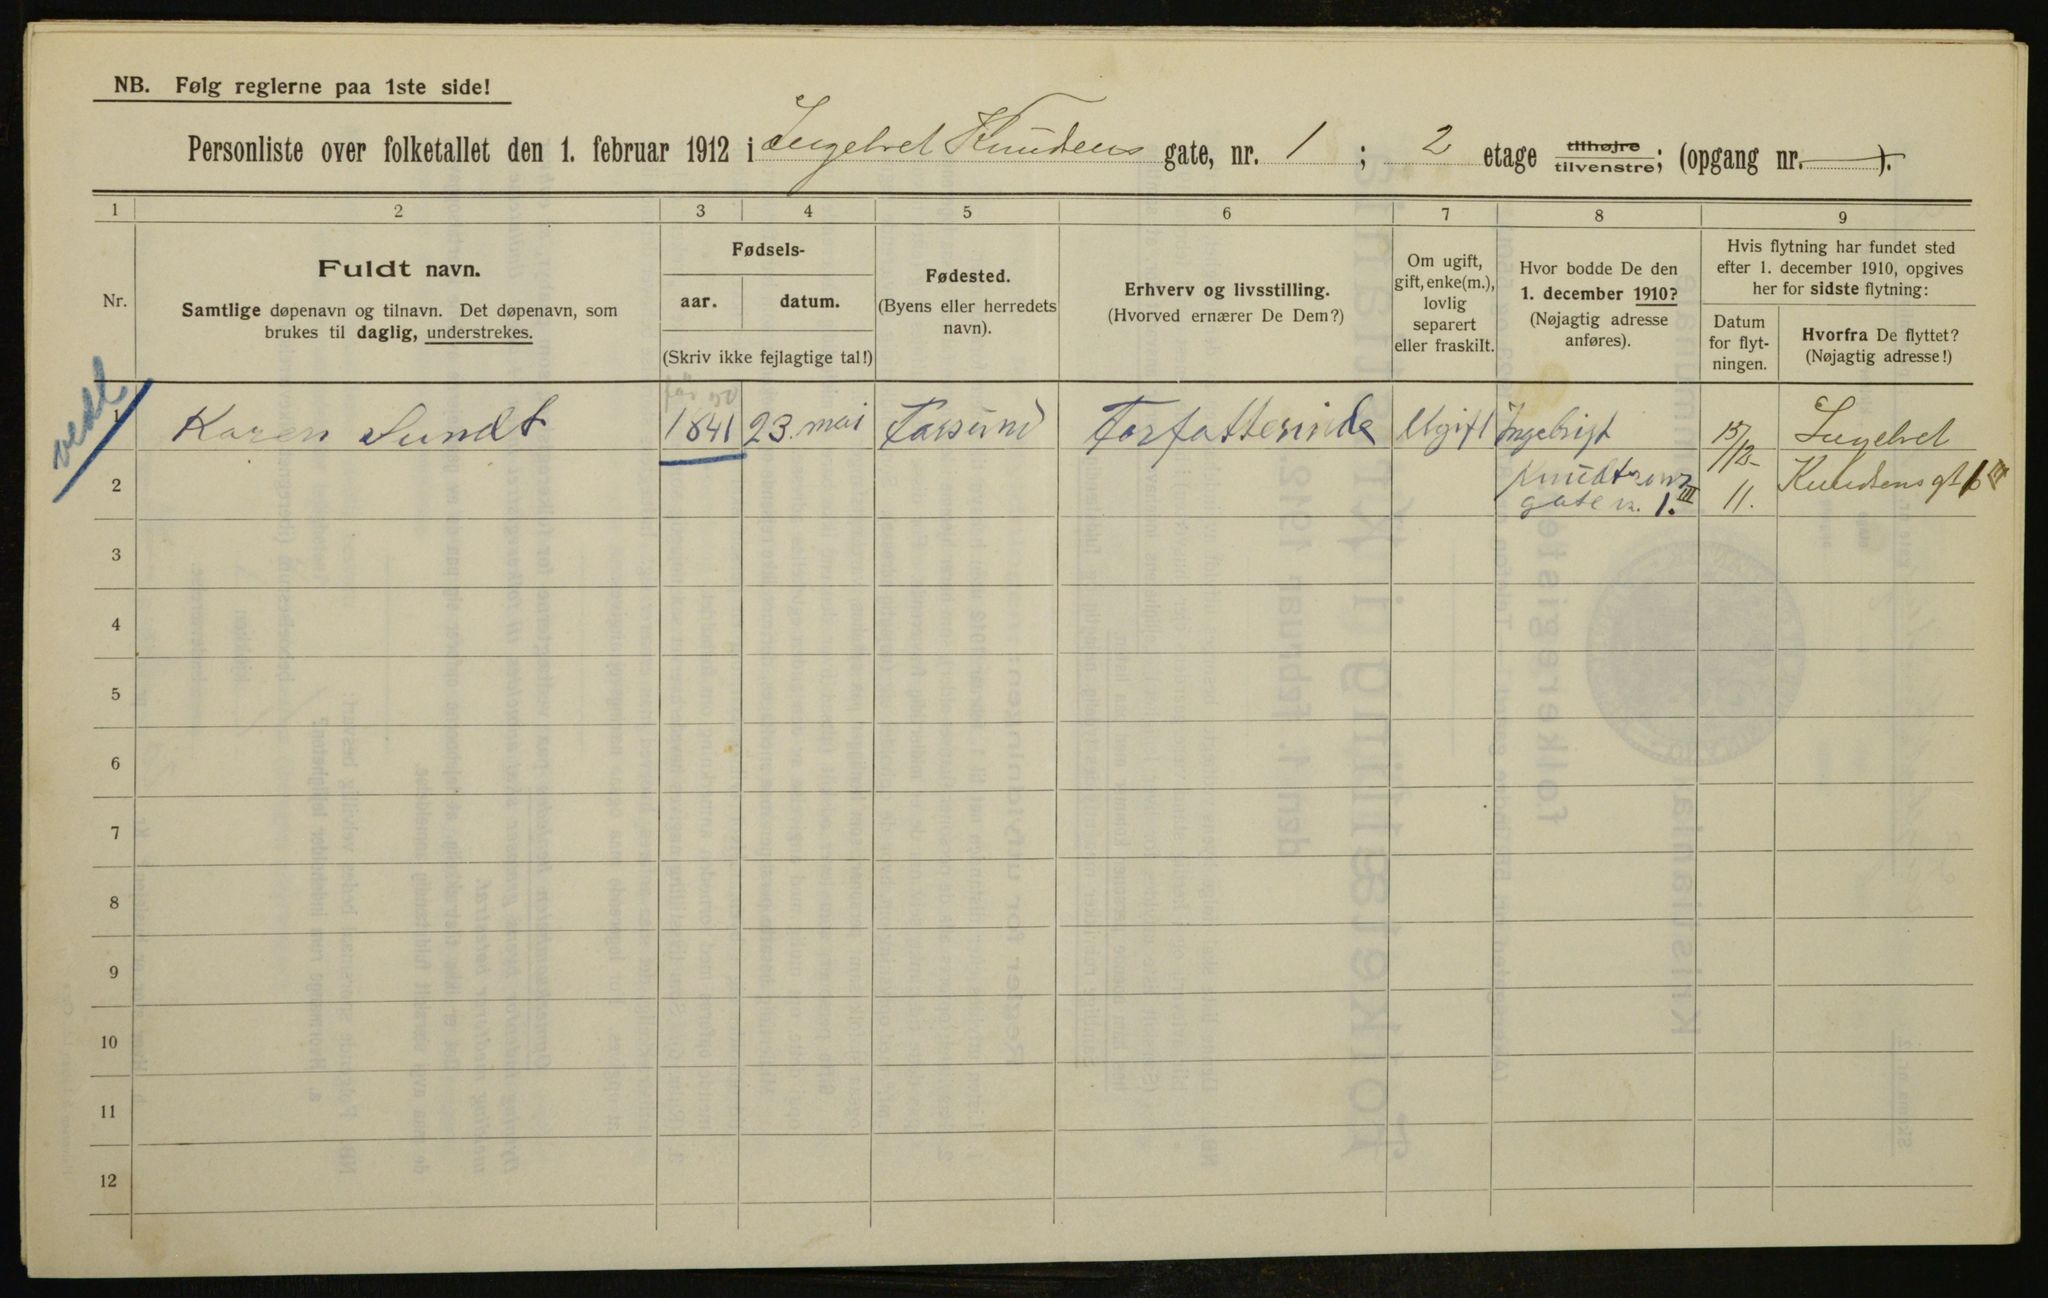 NB. Følg reglerne paa 1ste side!
Personliste over folketallet den 1. februar 1912 i Ingebret Knudsens gate, nr. 1 ; 2 etage tilhøjre tilvenstre; (opgang nr. — ).
1 2 3 4 5 6 7 8 9
Nr.
Fuldt navn.
Samtlige døpenavn og tilnavn. Det døpenavn, som
brukes til daglig, understrekes.
Fødsels-
aar. datum.
(Skriv ikke fejlagtige tal!)
Fødested.
(Byens eller herredets
navn).
Erhverv og livsstilling.
(Hvorved ernærer De Dem?)
Om ugift,
gift, enke(m.),
lovlig
separert
eller fraskilt.
Hvor bodde De den
1. december 1910?
(Nøjagtig adresse
anføres).
Hvis flytning har fundet sted
efter 1. december 1910, opgives
her for sidste flytning:
Datum
for flyt-
ningen.
Hvorfra De flyttet?
(Nøjagtig adresse!)
vedl
1 Karen Sundt 1841 23. mai Farsund Forfatterinde Ugift Ingebrigt 15/12- Ingebret
2 Knudtsons 11. Knudsens gt 1 III
gate n. 1. III
3
4
5
6
7
8
9
10
11
12